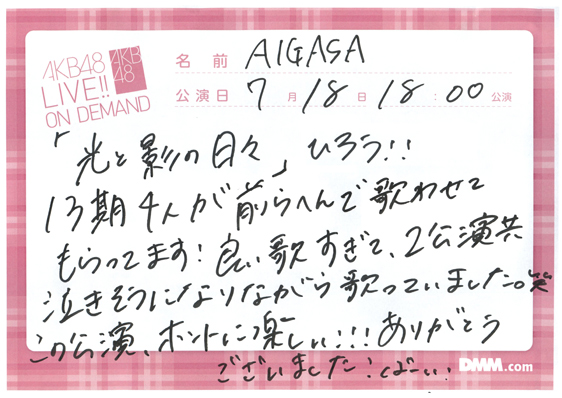 AKB48
LIVE!!
ON DEMAND
AKB
48
名前 AIGASA
公演日 7月18日 18:00公演
「光と影の日々」ひろう!!
13期4人が前らへんで歌わせて
もらってます!良い歌すぎて、2公演共
泣きそうになりながら歌っていました。笑
この公演、ホントに楽しい!!!ありがとう
ございました!ばーい!
DMM.com